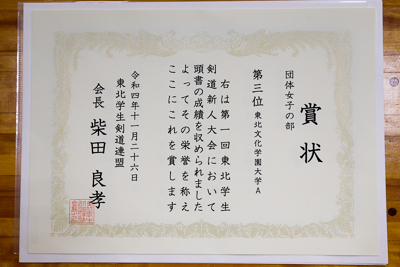 賞状
団体女子の部
第三位 東北文化学園大学A
右は第一回東北学生
剣道新人大会において
頭書の成績を収められました
よってその栄誉を称え
ここにこれを賞します
令和四年十一月二十六日
東北学生剣道連盟
会長 柴田良孝